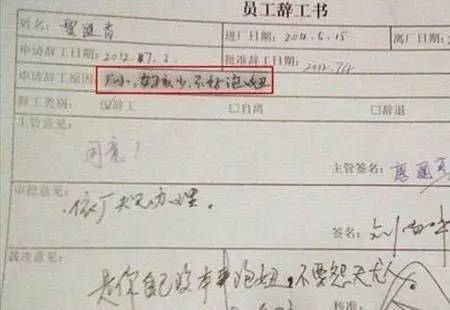 员工辞工书
姓名: 进厂日期: 2011.6.15 离厂日期
申请辞工日期: 2012.7.2. 批准辞工日期: 2012.7/4
申请辞工原因: 厂小,女孩少,不好泡妞
辞工类别: ☑辞工 □自离 □辞退
主管意见:
同意!
主管签名:
审批意见:
依厂规办理。
签名:
裁决意见:
是你自己没本事泡妞,不要怨天尤人。
核准: